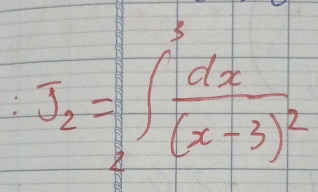 : J₂ = ∫₂³ dx/(x-3)²